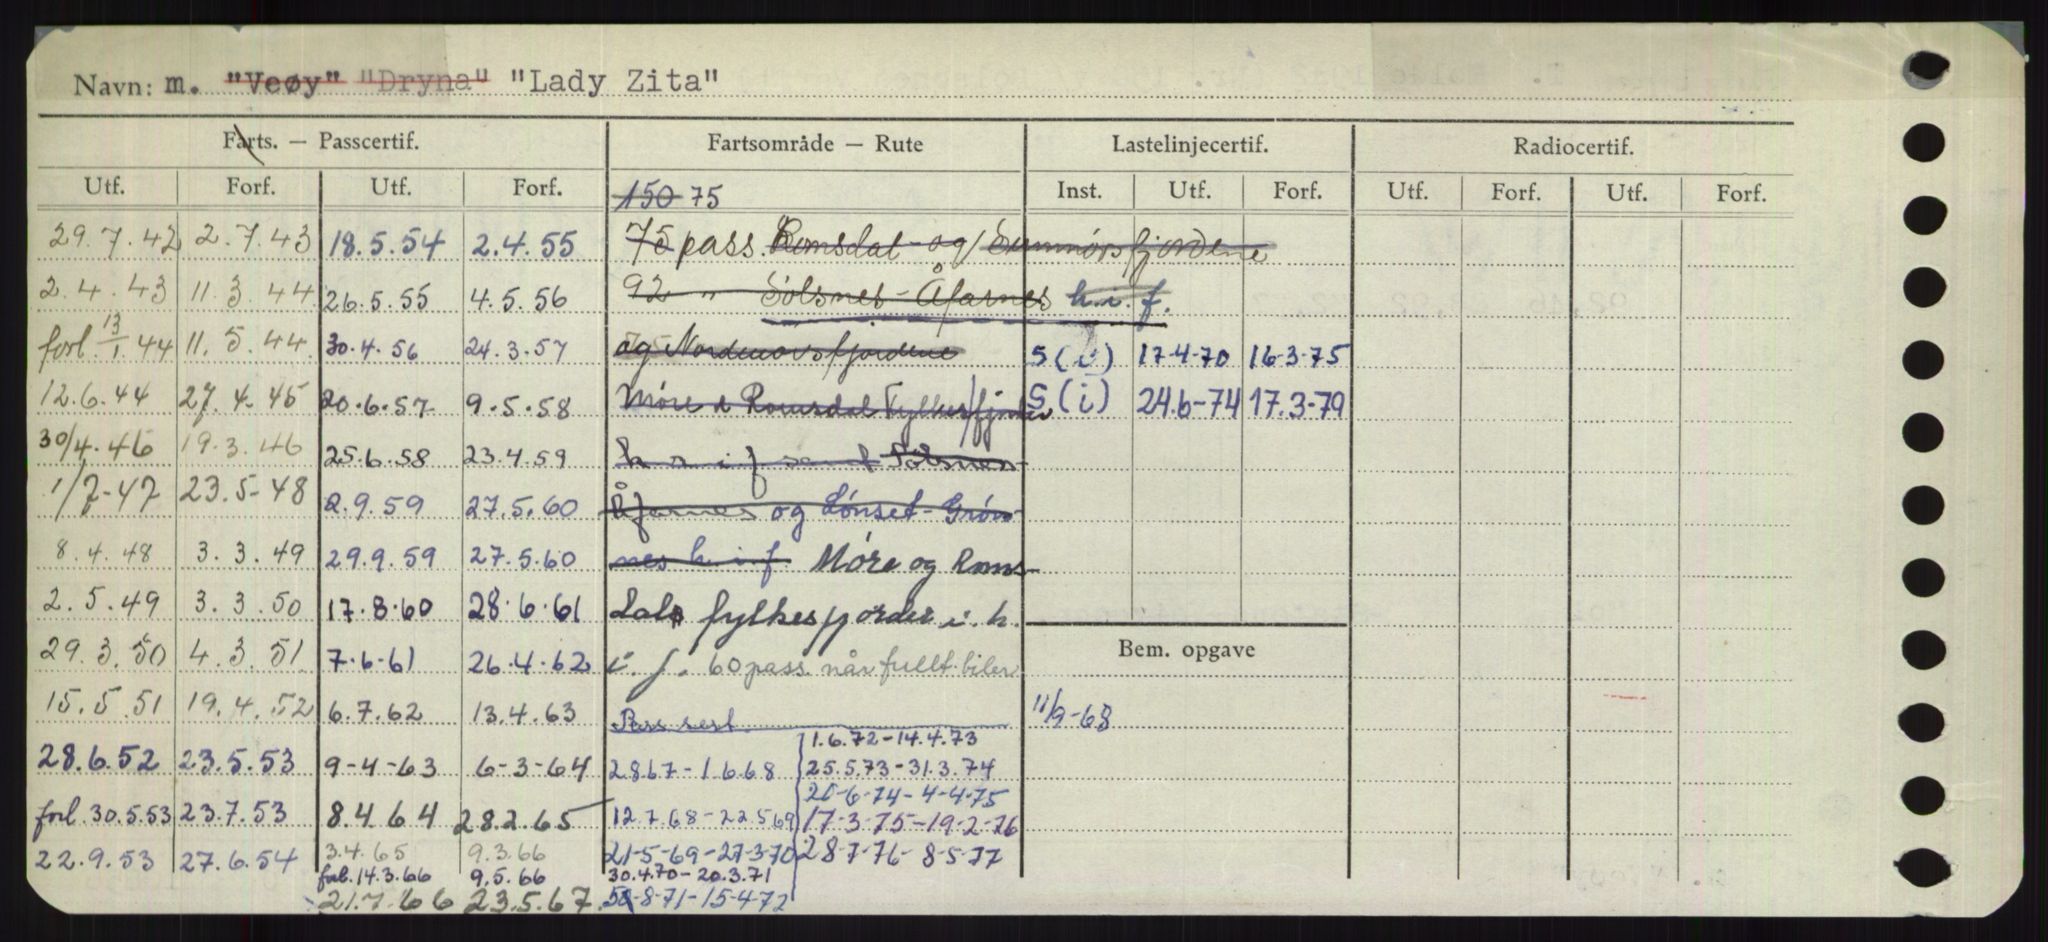 Navn: m. "Veøy" "Dryna" "Lady Zita"
Farts. — Passcertif. Fartsområde — Rute Lastelinjecertif. Radiocertif.
Utf. Forf. Utf. Forf. 150 75 Inst. Utf. Forf. Utf. Forf. Utf. Forf.
29.7.42 2.7.43 18.5.54 2.4.55 75 pass. Romsdal- og Sunmørsfjordene
2.4.43 11.3.44 26.5.55 4.5.56 92 " Sølsnes-Åfarnes h.i.f.
forl. 13/1 44 11.5.44 30.4.56 24.3.57 og Nordmørsfjordene S (i) 17-4-70 16-3-75
12.6.44 27.4.45 20.6.57 9.5.58 Møre & Romsdal Fylkes/fjorder S (i) 24.6-74 17.3-79
30/4.46 19.3.46 25.6.58 23.4.59 h i f samt Sølsnes-
1/7-47 23.5-48 2.9.59 27.5.60 Åfarnes og Lønset-Grøn-
8.4.48 3.3.49 29.9.59 27.5.60 nes h.i.f. Møre og Roms-
2.5.49 3.3.50 17.8.60 28.6.61 dals fylkesfjorder i.h.
29.3.50 4.3.51 7.6-61 26.4.62 i.f. 60 pass. når fullt biler
Bem. opgave
15.5.51 19.4.52 6.7.62 13.4.63 Pass sert. 11/9-68
1.6.72-14.4.73
28.6.52 23.5.53 9-4-63 6-3-64 2.8.67-1.6.68 25.5.73-31.3.74
26-6-74-4-4-75
forl. 30.5.53 23.7.53 8.4.64 28.2.65 12.7.68-22.5.69 17-3-75-19-2-76
22.9.53 27.6.54 3.4.65 9.3.66 21-5-69-27-3-70 28-7-76-8-5-77
forl. 14.3.66 9.5.66 30.4.70-20.3.71
21.7.66 23.5.67 -8-71-15-4-72